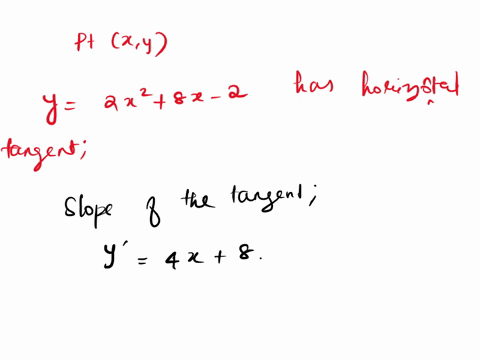 Pt (x,y)
y = 2x² + 8x - 2 has horizotal
tangent;
Slope of the tangent;
y' = 4x + 8.